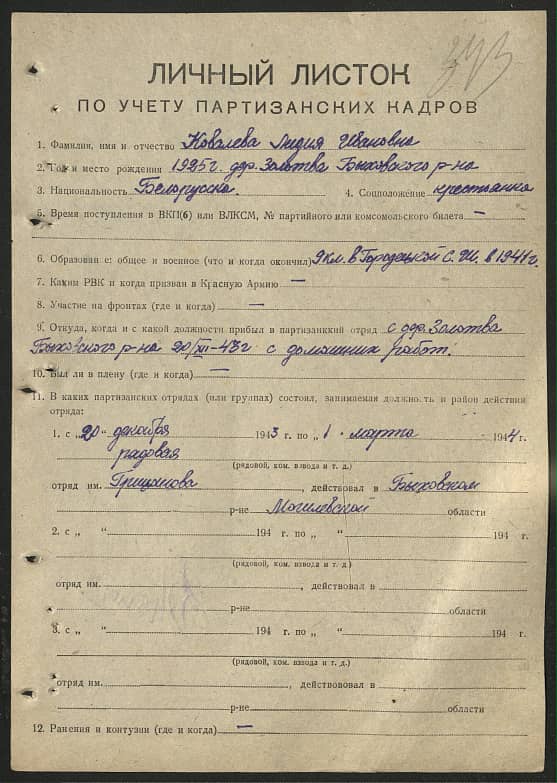 ЛИЧНЫЙ ЛИСТОК
ПО УЧЕТУ ПАРТИЗАНСКИХ КАДРОВ
1. Фамилия, имя и отчество Ковалева Лидия Ивановна
2. Год и место рождения 1925 г. дер. Золотва Быховского р-на
3. Национальность Белорусска. 4. Соцположение крестьянка
5. Время поступления в ВКП(б) или ВЛКСМ, № партийного или комсомольского билета —
6. Образование: общее и военное (что и когда окончил) 9 кл. в Городецкой С.Ш. в 1941 г.
7. Каким РВК и когда призван в Красную Армию —
8. Участие на фронтах (где и когда) —
9. Откуда, когда и с какой должности прибыл в партизанский отряд с дер. Золотва
Быховского р-на 20/XII-43г с домашних работ.
10. Был ли в плену (где и когда) —
11. В каких партизанских отрядах (или группах) состоял, занимаемая должность и район действия
отряда:
1. с „20“ декабря 1943 г. по „1“ марта 1944 г.
рядовая
(рядовой, ком. взвода и т. д.)
отряд им. Гришанова, действовал в Быховском
р-не Могилевской области
2. с „ “ 194 г. по „ “ 194 г.
(рядовой, ком. взвода и т. д.)
отряд им. , действовал в
р-не области
3. с „ “ 194 г. по „ “ 194 г.
(рядовой, ком. взвода и т. д.)
отряд им. , действововал в
р-не области
12. Ранения и контузии (где и когда) —